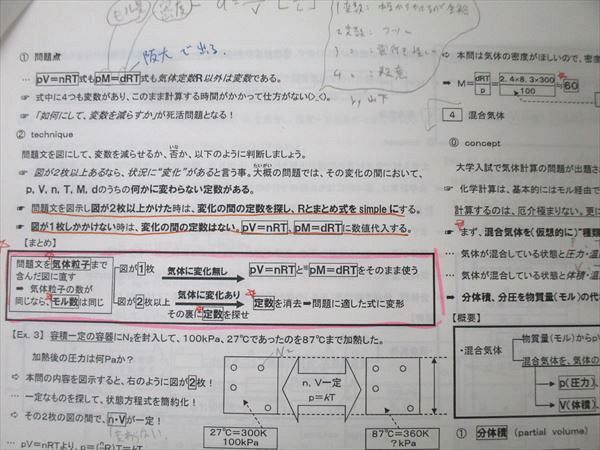 阪大で出る。
① 問題点
… pV=nRT式もpM=dRT式も気体定数R以外は変数である。
☞ 式中に4つも変数があり、このまま計算する時間がかかって仕方がない(>_<)。
☞ 「如何にして、変数を減らすか」が死活問題となる！
② technique
問題文を図にして、変数を減らせるか、否か、以下のように判断しましょう。
☞ 図が2枚以上あるなら、状況に“変化”があると言う事。大概の問題では、その変化の間において、
p, V, n, T, M, dのうちの何かに変わらない定数がある。
☞ 問題文を図示し図が2枚以上かけた時は、変化の間の定数を探し、Rとまとめ式をsimpleにする。
☞ 図が1枚しかかけない時は、変化の間の定数はない。pV=nRT、pM=dRTに数値代入する。
【まとめ】
問題文を気体粒子まで
含んだ図に直す
➡ 気体粒子の数が
同じなら、モル数は同じ
図が1枚
気体に変化無し
pV=nRTとpM=dRTをそのまま使う
図が2枚以上
気体に変化あり
その裏に定数を探せ
定数を消去⇒問題に適した式に変形
【Ex. 3】 容積一定の容器にN₂を封入して、100kPa、27℃であったのを87℃まで加熱した。
加熱後の圧力は何Paか？
☞ 本問の内容を図示すると、右のように図が2枚！
… 一定なものを探して、状態方程式を簡約化！
☞ その2枚の図の間で、n・Vが一定！
… pV=nRTより、p=(nR/V)T=kT
N₂
n, V一定
p=kT
27℃=300K
100kPa
87℃=360K
?kPa
☞ 本問は気体の密度がほしいので、密
➡ M=dRT/p=2.4×8.3×300/100≒60
4 混合気体
⓪ concept
大学入試で気体計算の問題が出題さ
☞ 化学計算は、基本的にはモル経由で
計算するのは、厄介極まりない。更に
☞ まず、混合気体を(仮想的に)“種類
… 気体が混合している状態と圧力・温
… 気体が混合している状態と体積・温
➡ 分体積、分圧を物質量(モル)の代
【概要】
・混合気体
物質量(モル)からp
混合気体を、気体の
p(圧力)、
V(体積)、
① 分体積 (partial volume)